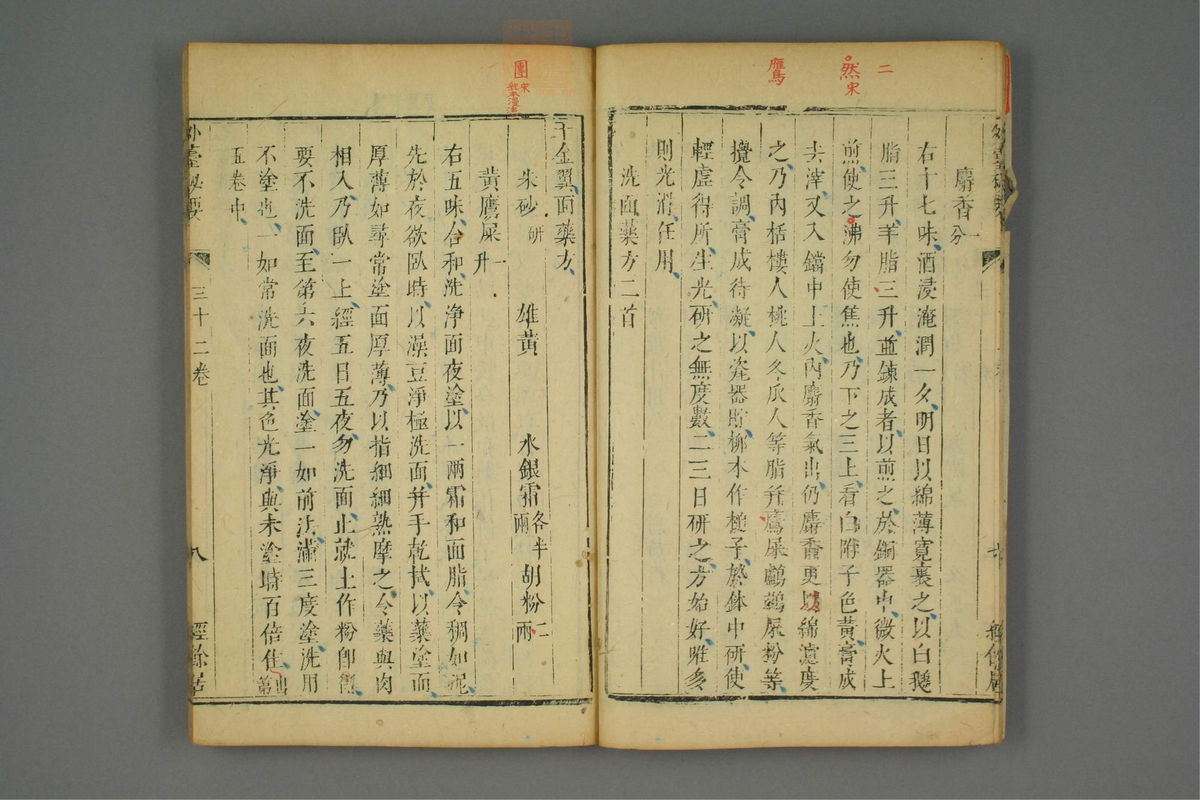 二
然 宋
鴈
麝香一分
右十七味酒浸淹潤一夕明日以綿薄寛裹之以白鵝
脂三升羊脂三升並鍊成者以煎之於銅器中微火上
煎使之沸勿使焦也乃下之三上看白附子色黄膏成
去滓又入鐺中上火内麝香氣出仍麝香更以綿濾度
之乃内栝樓人桃人冬瓜人等脂并鷹屎鸕鷀屎粉等
攪令調膏成待凝以瓷器貯柳木作槌子於鉢中研使
輕虛得所生光研之無度數二三日研之方始好唯多
則光滑任用
洗面藥方二首
團 宋
千金翼面藥方
朱砂研 雄黄 水銀霜各半兩 胡粉二兩
黄鷹屎一升
右五味合和洗淨面夜塗以一兩霜和面脂令稠如泥
先於夜欲臥時以澡豆淨極洗面并手乾拭以藥塗面
厚薄如尋常塗面厚薄乃以指細細熟摩之令藥與肉
相入乃臥一上經五日五夜勿洗面止就上作粉即得
要不洗面至第六夜洗面塗一如前法滿三度塗洗用
不塗也一如常洗面也其色光淨與未塗時百倍佳出第
五卷中
外臺祕要
三十二卷
八
經餘居